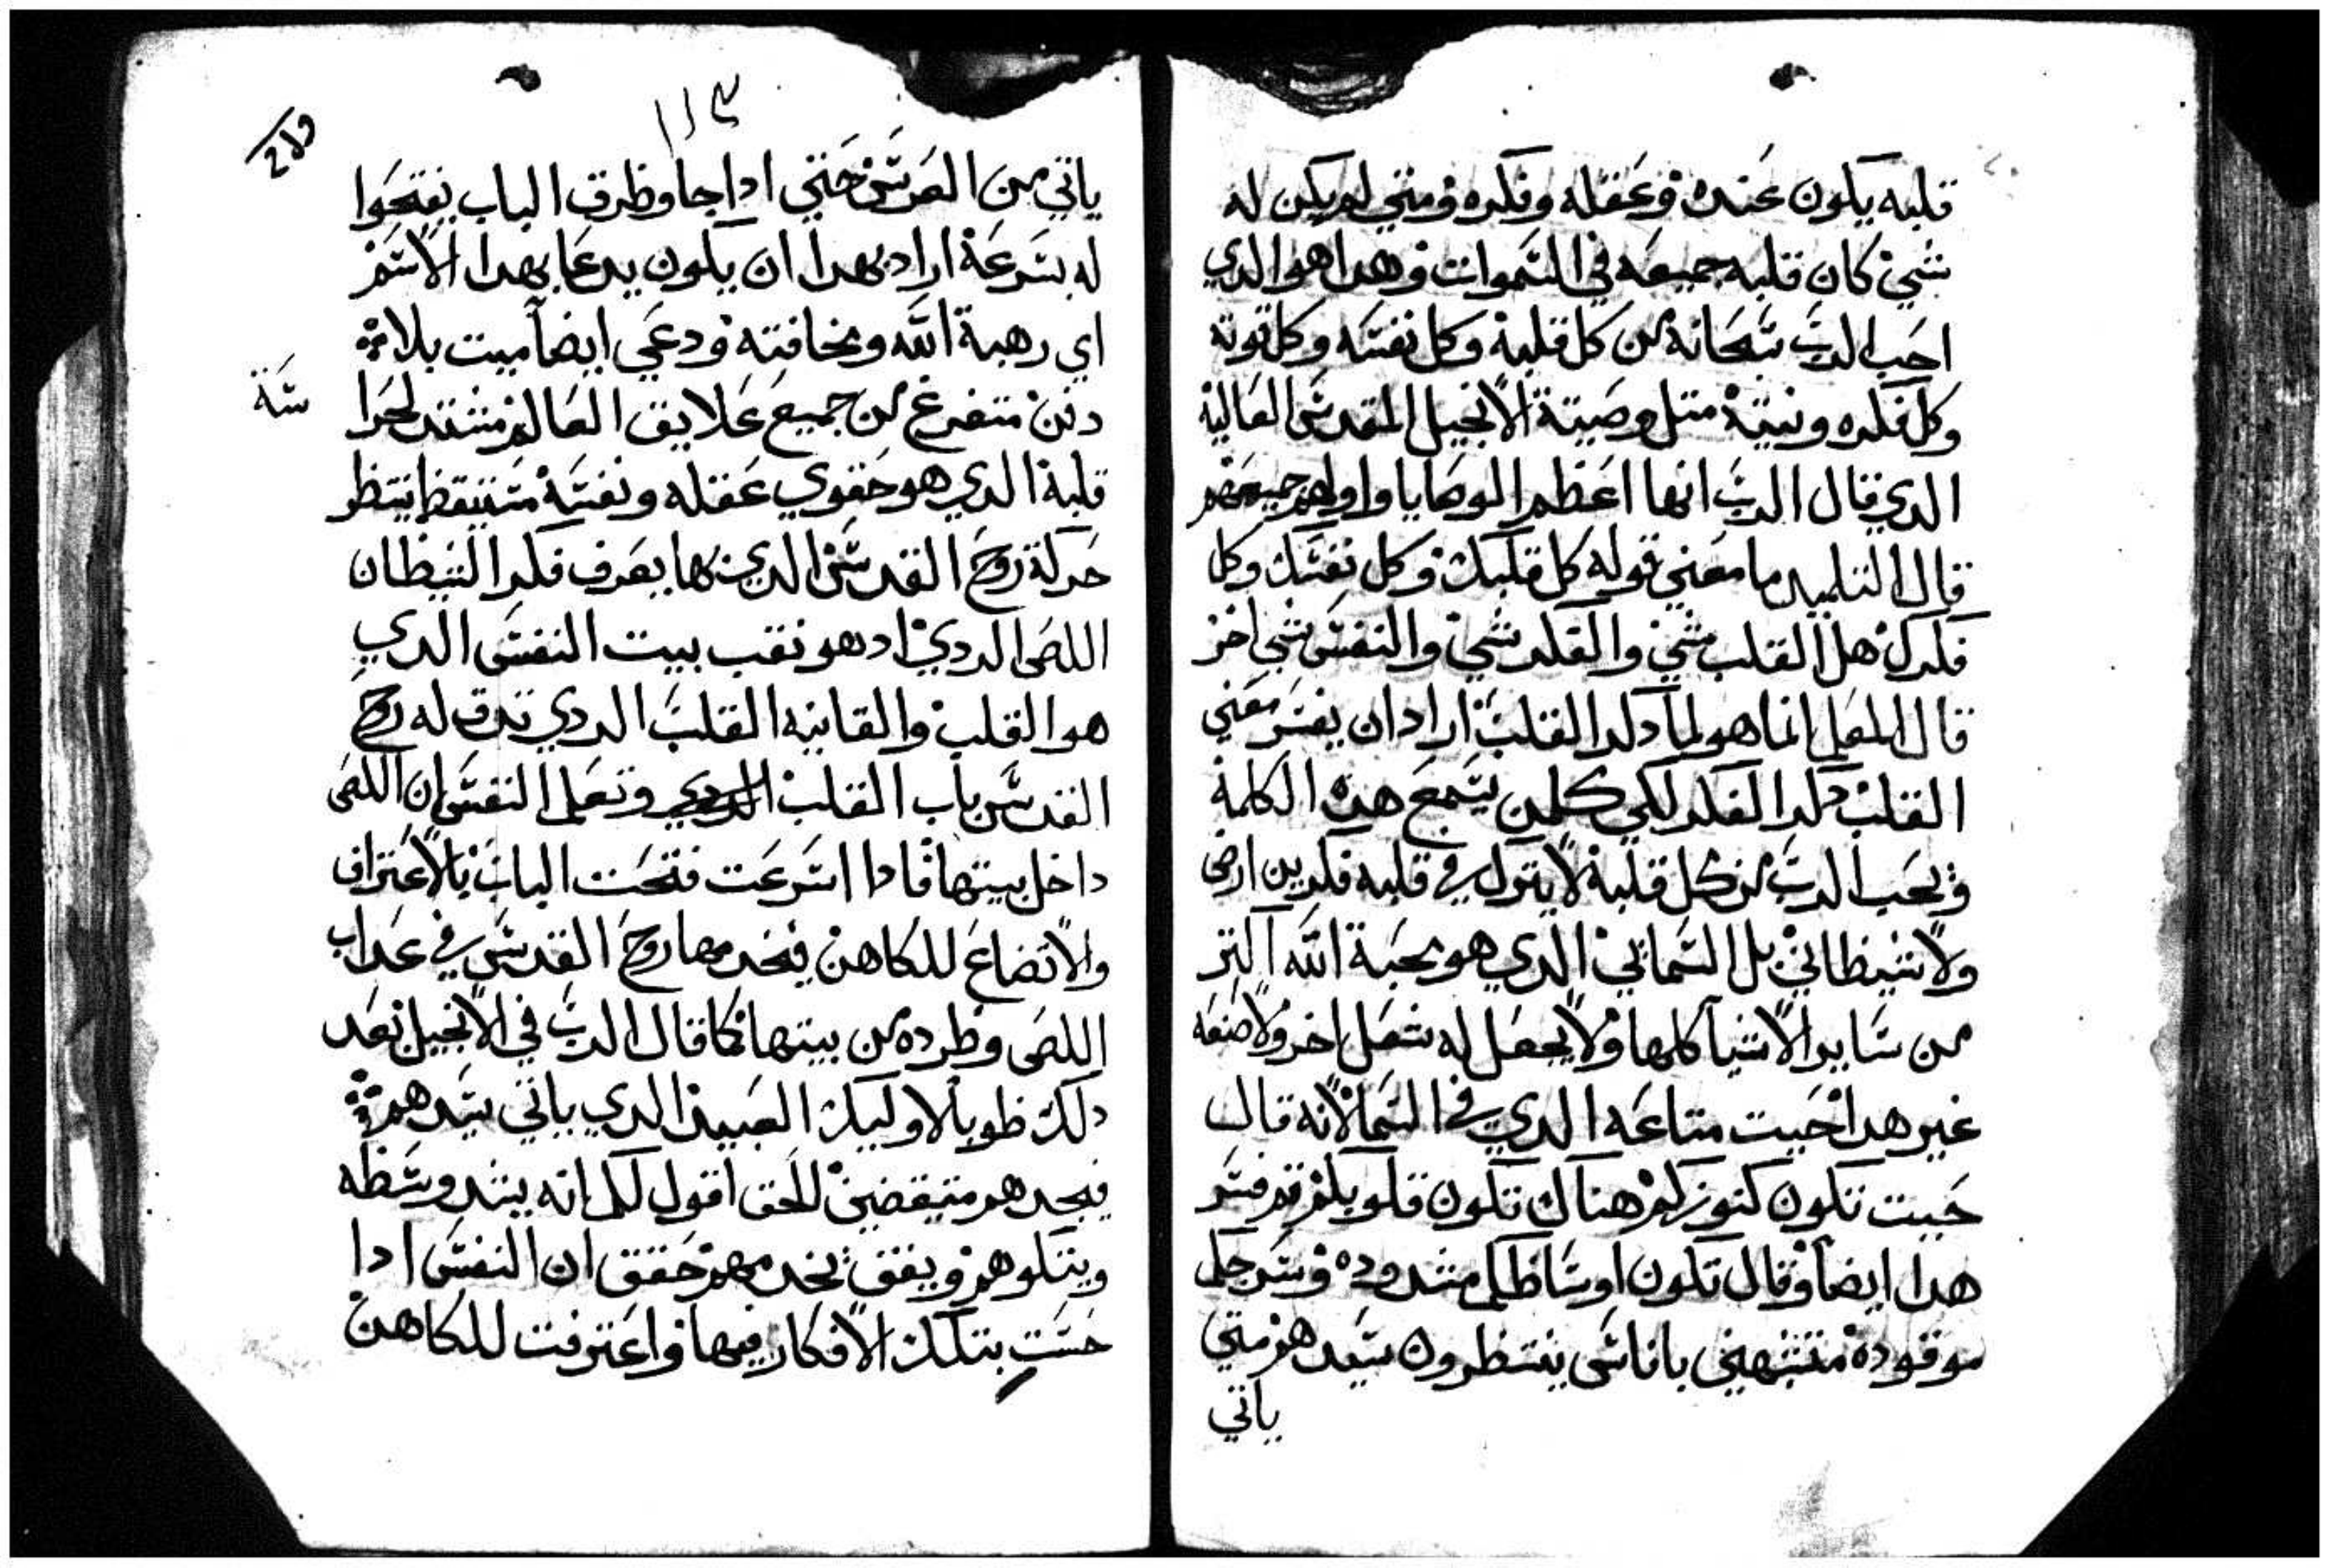 قلبه يكون عنده وعقله وفكره ومتي لم يكن له
شي كان قلبه جميعه في السموات وهدا هو الدي
احب الرب سبحانه من كل قلبه وكل نفسه وكل قوته
وكل فكره ونيته متل وصيته الانجيل المقدس العاليه
الدي قال الرب انها اعظم الوصايا واولهم جميعهم
قال التلميد ما معني قوله كل قلبك وكل نفسك وكل
فكرك هل القلب شي والفكر شي والنفس شي اخر
قال المعلم انما هو لما دكر القلب اراد ان يفسر معني
القلب دكر الفكر لكي كلمن يسمع هده الكلمة
ويحب الرب من كل قلبه لا يترك في قلبه فكر ين ارضي
ولا شيطاني بل السماتي الدي هو محبة الله اكتر
من سايرالاشيا كلها ولا يجعل له شغل اخر ولا صنعه
غير هدا حيت متاعه الدي في السما لانه قال
حيت تكون كنوزكم هناك تكون قلوبكم تم فسر
هدا ايضا وقال تكون اوساطكم مشدوده وسرجكم
موقوده متشبهين باناس ينتظرون سيدهم متي
ياتي
١١٣
ياتي من العرس حتي ادا جا وطرق الباب يفتحوا
له بسرعة اراد بهدا ان يكون يدعا بهدا الاسم
اي رهبة الله ومخافته ودعي ايضا ميت بلا
دفن متفرغ من جميع علايق العالم منتقد لحرا
سة
قلبه الدي هو حقوي عقله ونفسه متيقظ ينتظر
حركة روح القدس الدي بها يعرف فكر الشيطان
اللص الردي اد هو نقب بيت النفس الدي
هو القلب والقابيه القلب الردي تدق له روح
القدس باب القلب الردي وتعلم النفس ان اللص
داخل بيتها فادا اسرعت فتحت الباب بالاعتراف
والاتضاع للكاهن فيخدمها روح القدس في عداب
اللص وطرده من بيتها كما قال الرب في الانجيل بعد
دلك طوبا لاوليك العبيد الدي ياتي سيدهم
فيجدهم متيقضين للحق اقول لكم انه يشد وسطه
ويتكوهم ويقف يخدمهم حقق ان النفس ادا
حست بتلك الافكار فيها واعترفت للكاهن